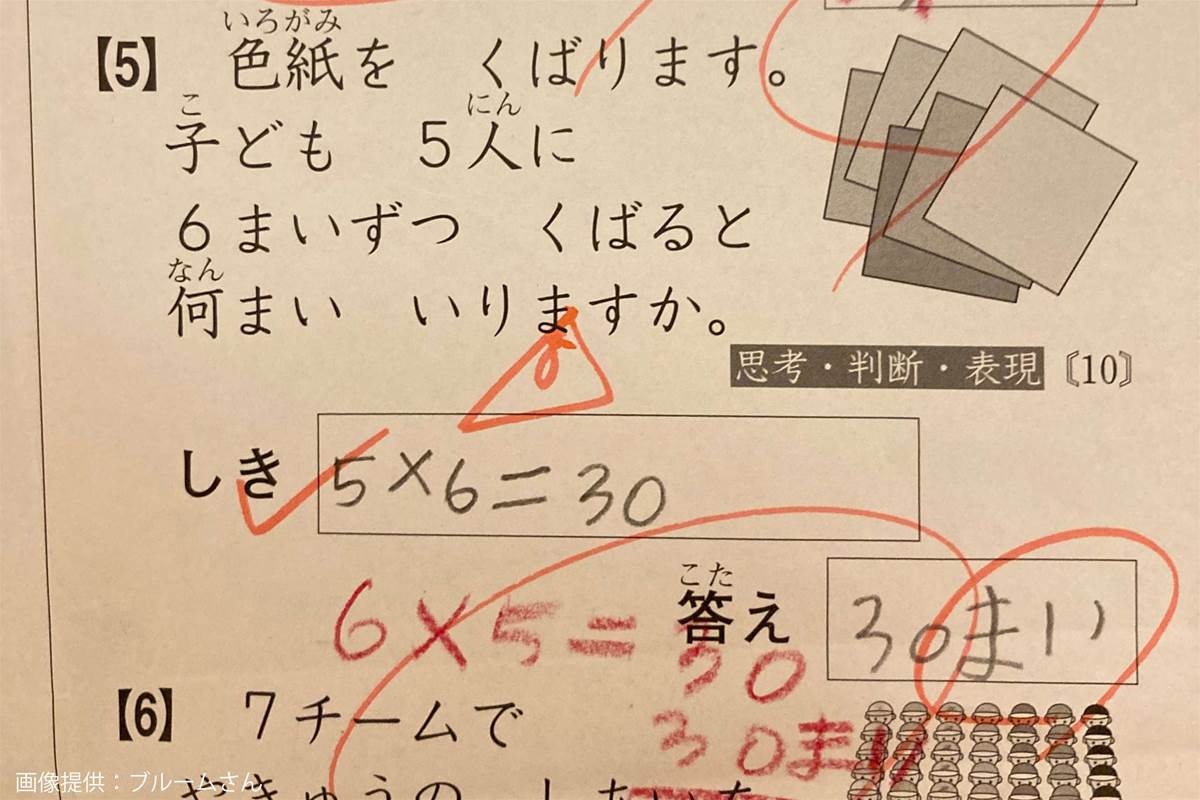 いろがみ
【5】 色紙を くばります。
こ にん
子ども 5人に
6まいずつ くばると
なん
何まい いりますか。
思考・判断・表現〔10〕
しき 5×6=30
こた
答え 30まい
6×5=30
30まい
【6】 7チームで
画像提供：ブルームさん